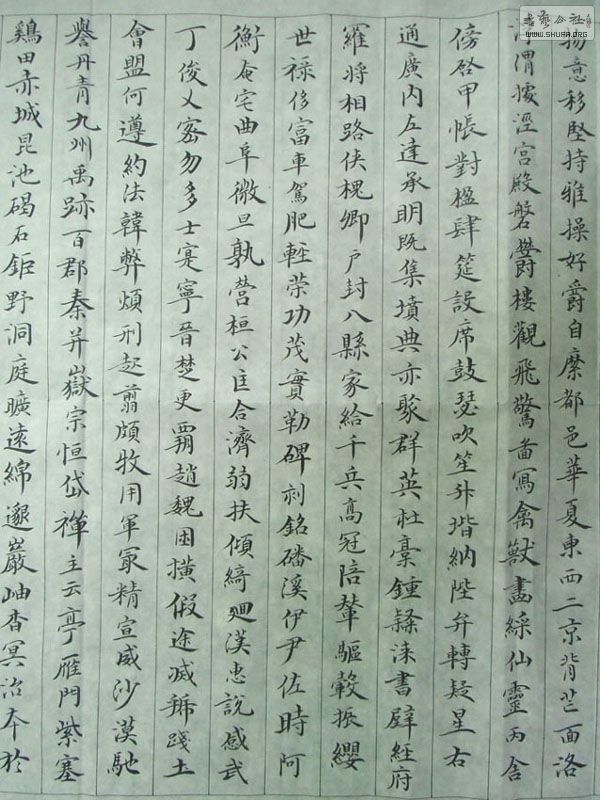 物意移堅持雅操好爵自縻都邑華夏東西二京背芒面洛
浮渭據涇宮殿磐鬱樓觀飛驚啚寫禽獸畫綵仙靈丙舍
傍啓甲帳對楹肆筵設席鼓瑟吹笙升堦納陛弁轉疑星右
通廣內左達承明既集墳典亦聚群英杜稾鍾隸漆書壁經府
羅將相路俠槐卿戶封八縣家給千兵高冠陪輦驅轂振纓
世祿侈富車駕肥輕策功茂實勒碑刻銘磻溪伊尹佐時阿
衡奄宅曲阜微旦孰營桓公匡合濟弱扶傾綺迴漢惠說感武
丁俊乂密勿多士寔寧晉楚更霸趙魏困橫假途滅虢踐土
會盟何遵約法韓弊煩刑起翦頗牧用軍最精宣威沙漠馳
譽丹青九州禹跡百郡秦并嶽宗恒岱禪主云亭雁門紫塞
鷄田赤城昆池碣石鉅野洞庭曠遠綿邈巖岫杳冥治本於
书艺公社
WWW.SHUFA.ORG